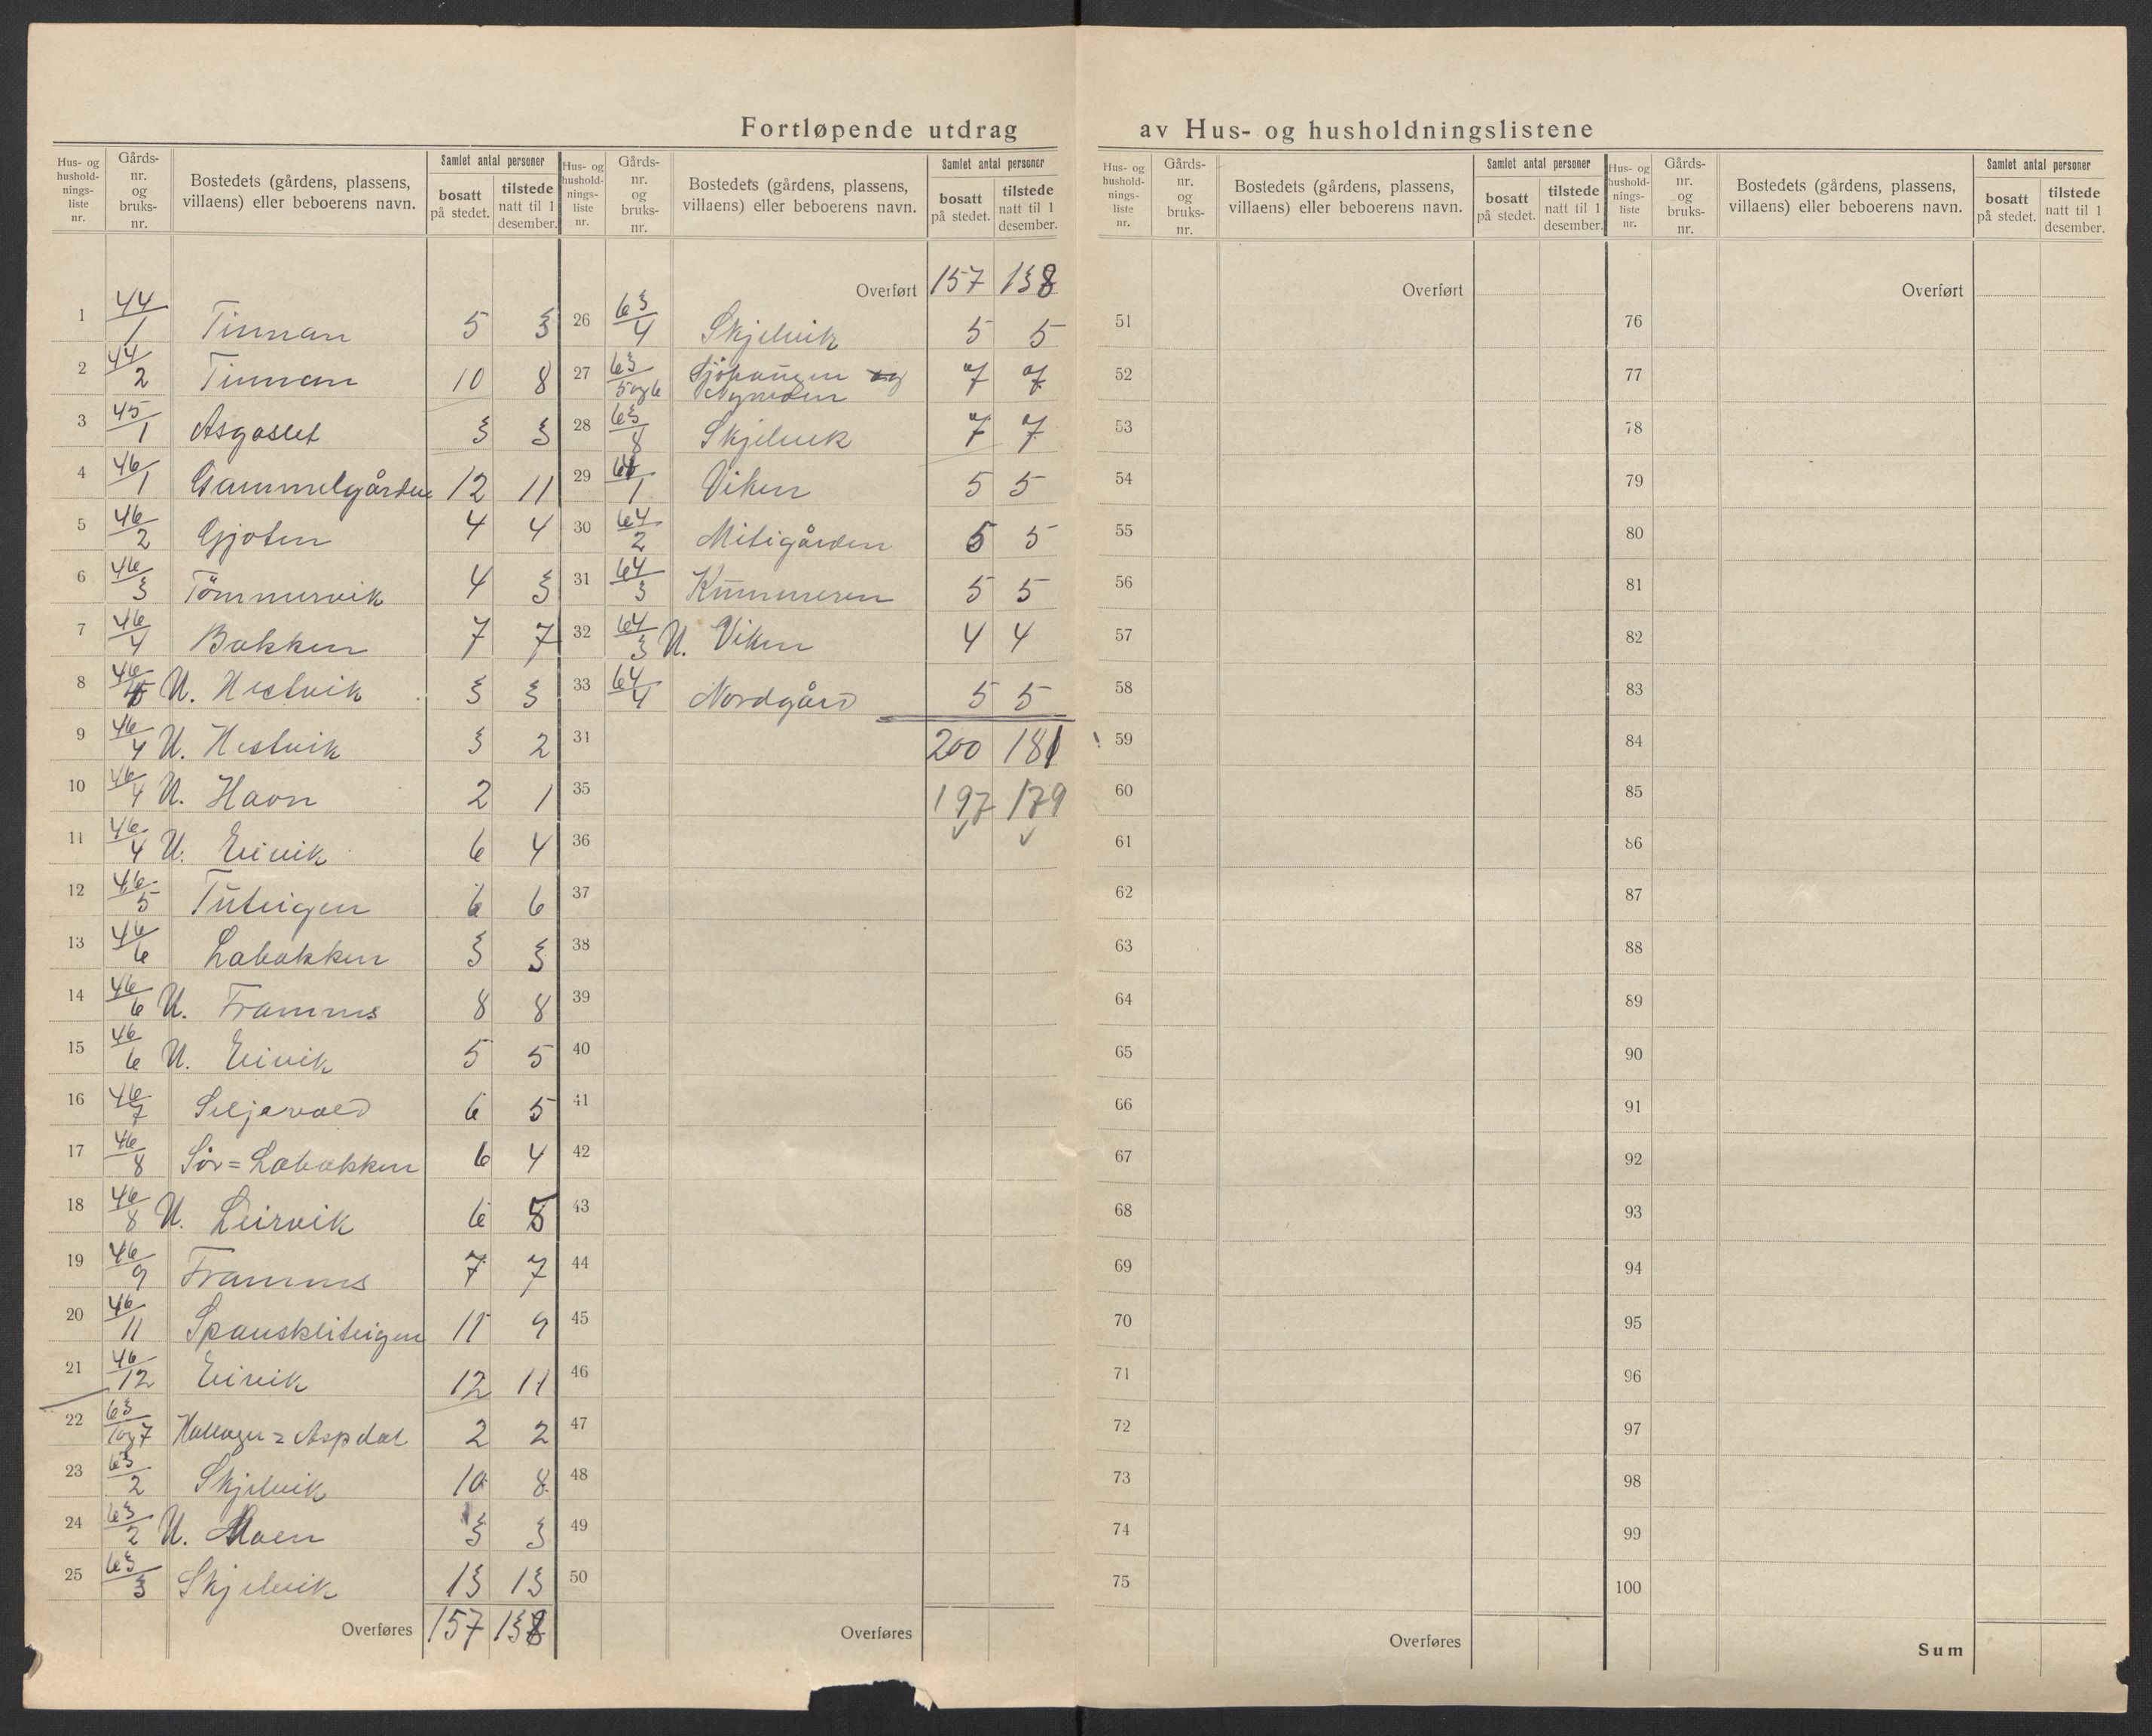 Fortløpende utdrag av Hus- og husholdningslistene
Hus- og hushold-nings-liste nr. Gårds-nr. og bruks-nr. Bostedets (gårdens, plassens, villaens) eller beboerens navn. Samlet antal personer bosatt på stedet. tilstede natt til 1 desember.
1 44/1 Tinnan 5 3
2 44/2 Tinnan 10 8
3 45/1 Asgaslet 3 3
4 46/1 Gammelgården 12 11
5 46/2 Gjoten 4 4
6 46/3 Tömmervik 4 3
7 46/4 Bakken 7 7
8 46/4 U. Hestvik 3 3
9 46/4 U. Hestvik 3 2
10 46/4 U. Havn 2 1
11 46/4 U. Eivik 6 4
12 46/5 Tuteigen 6 6
13 46/6 Labakken 3 3
14 46/6 U. Framnes 8 8
15 46/6 U. Eivik 5 5
16 46/7 Seljevold 6 5
17 46/8 Sör=Labakken 6 4
18 46/8 U. Leirvik 6 5
19 46/9 Framnes 7 7
20 46/11 11 9
21 46/12 Eivik 12 11
22 63/1og7 = Aspdal 2 2
23 63/2 Skjelvik 10 8
24 63/2 U. Moen 3 3
25 63/3 Skjelvik 13 13
Overføres 157 138
Hus- og hushold-nings-liste nr. Gårds-nr. og bruks-nr. Bostedets (gårdens, plassens, villaens) eller beboerens navn. Samlet antal personer bosatt på stedet. tilstede natt til 1 desember.
Overført 157 138
26 63/4 Skjelvik 5 5
27 63/5og6 og 7 7
28 63/8 Skjelvik 7 7
29 64/1 Viken 5 5
30 64/2 Mitigården 5 5
31 64/3 Kummeren 5 5
32 64/3 U. Viken 4 4
33 64/4 Nordgård 5 5
31 200 181
35 197 179
36
37
38
39
40
41
42
43
44
45
46
47
48
49
50
Overføres
Hus- og hushold-nings-liste nr. Gårds-nr. og bruks-nr. Bostedets (gårdens, plassens, villaens) eller beboerens navn. Samlet antal personer bosatt på stedet. tilstede natt til 1 desember.
Overført
51
52
53
54
55
56
57
58
59
60
61
62
63
64
65
66
67
68
69
70
71
72
73
74
75
Overføres
Hus- og hushold-nings-liste nr. Gårds-nr. og bruks-nr. Bostedets (gårdens, plassens, villaens) eller beboerens navn. Samlet antal personer bosatt på stedet. tilstede natt til 1 desember.
Overført
76
77
78
79
80
81
82
83
84
85
86
87
88
89
90
91
92
93
94
95
96
97
98
99
100
Sum